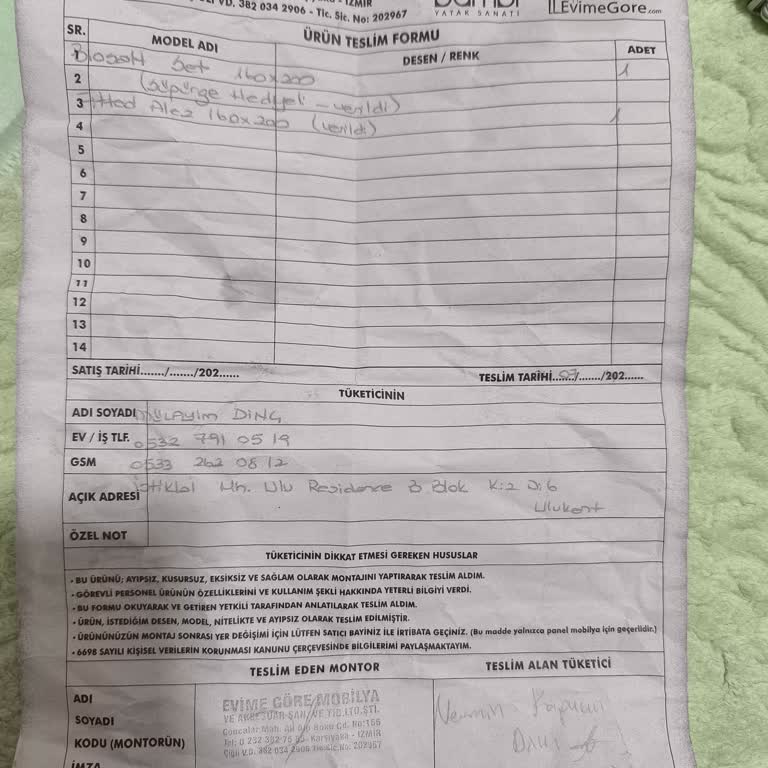 V.D. 382 034 2906 - Tic. Sic. No: 202967
YATAK SANATI
EvimeGore.com
ÜRÜN TESLİM FORMU
SR. MODEL ADI DESEN / RENK ADET
1 Set 160x200 1
2 (Süpürge Hediyeli - verildi)
3 Alez 160x200 (verildi) 1
4
5
6
7
8
9
10
11
12
13
14
SATIŞ TARİHİ......./......./202......
TESLİM TARİHİ...07../......./202......
TÜKETİCİNİN
ADI SOYADI MÜLAYİM DİNÇ
EV / İŞ TLF. 0532 791 05 19
GSM 0533 262 08 12
AÇIK ADRESİ İstiklal Mh. Ulu Residence B Blok K:2 D:6
Ulukent
ÖZEL NOT
TÜKETİCİNİN DİKKAT ETMESİ GEREKEN HUSUSLAR
• BU ÜRÜNÜ; AYIPSIZ, KUSURSUZ, EKSİKSİZ VE SAĞLAM OLARAK MONTAJINI YAPTIRARAK TESLİM ALDIM.
• GÖREVLİ PERSONEL ÜRÜNÜN ÖZELLİKLERİNİ VE KULLANIM ŞEKLİ HAKKINDA YETERLİ BİLGİYİ VERDİ.
• BU FORMU OKUYARAK VE GETİREN YETKİLİ TARAFINDAN ANLATILARAK TESLİM ALDIM.
• ÜRÜN, İSTEDİĞİM DESEN, MODEL, NİTELİKTE VE AYIPSIZ OLARAK TESLİM EDİLMİŞTİR.
• ÜRÜNÜNÜZÜN MONTAJ SONRASI YER DEĞİŞİMİ İÇİN LÜTFEN SATICI BAYİNİZ İLE İRTİBATA GEÇİNİZ. (Bu madde yalnızca panel mobilya için geçerlidir.)
• 6698 SAYILI KİŞİSEL VERİLERİN KORUNMASI KANUNU ÇERÇEVESİNDE BİLGİLERİMİ PAYLAŞMAKTAYIM.
TESLİM EDEN MONTOR TESLİM ALAN TÜKETİCİ
ADI
SOYADI
KODU (MONTORÜN)
İMZA
EVİME GÖRE MOBİLYA
VE AKSESUAR SAN. VE TİC. LTD. ŞTİ.
Cad. No:166
Karşıyaka - İZMİR
Çiğli V.D. 382 034 2906 Tic.Sic.No: 202967